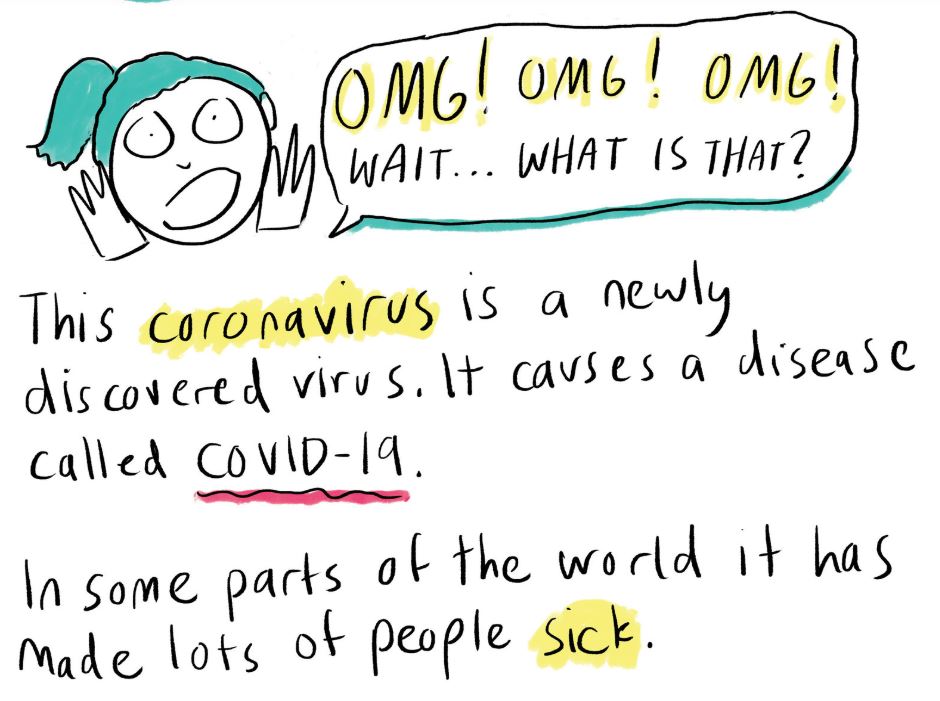 OMG! OMG! OMG!
WAIT... WHAT IS THAT?
This coronavirus is a newly
discovered virus. It causes a disease
called COVID-19.
In some parts of the world it has
made lots of people sick.